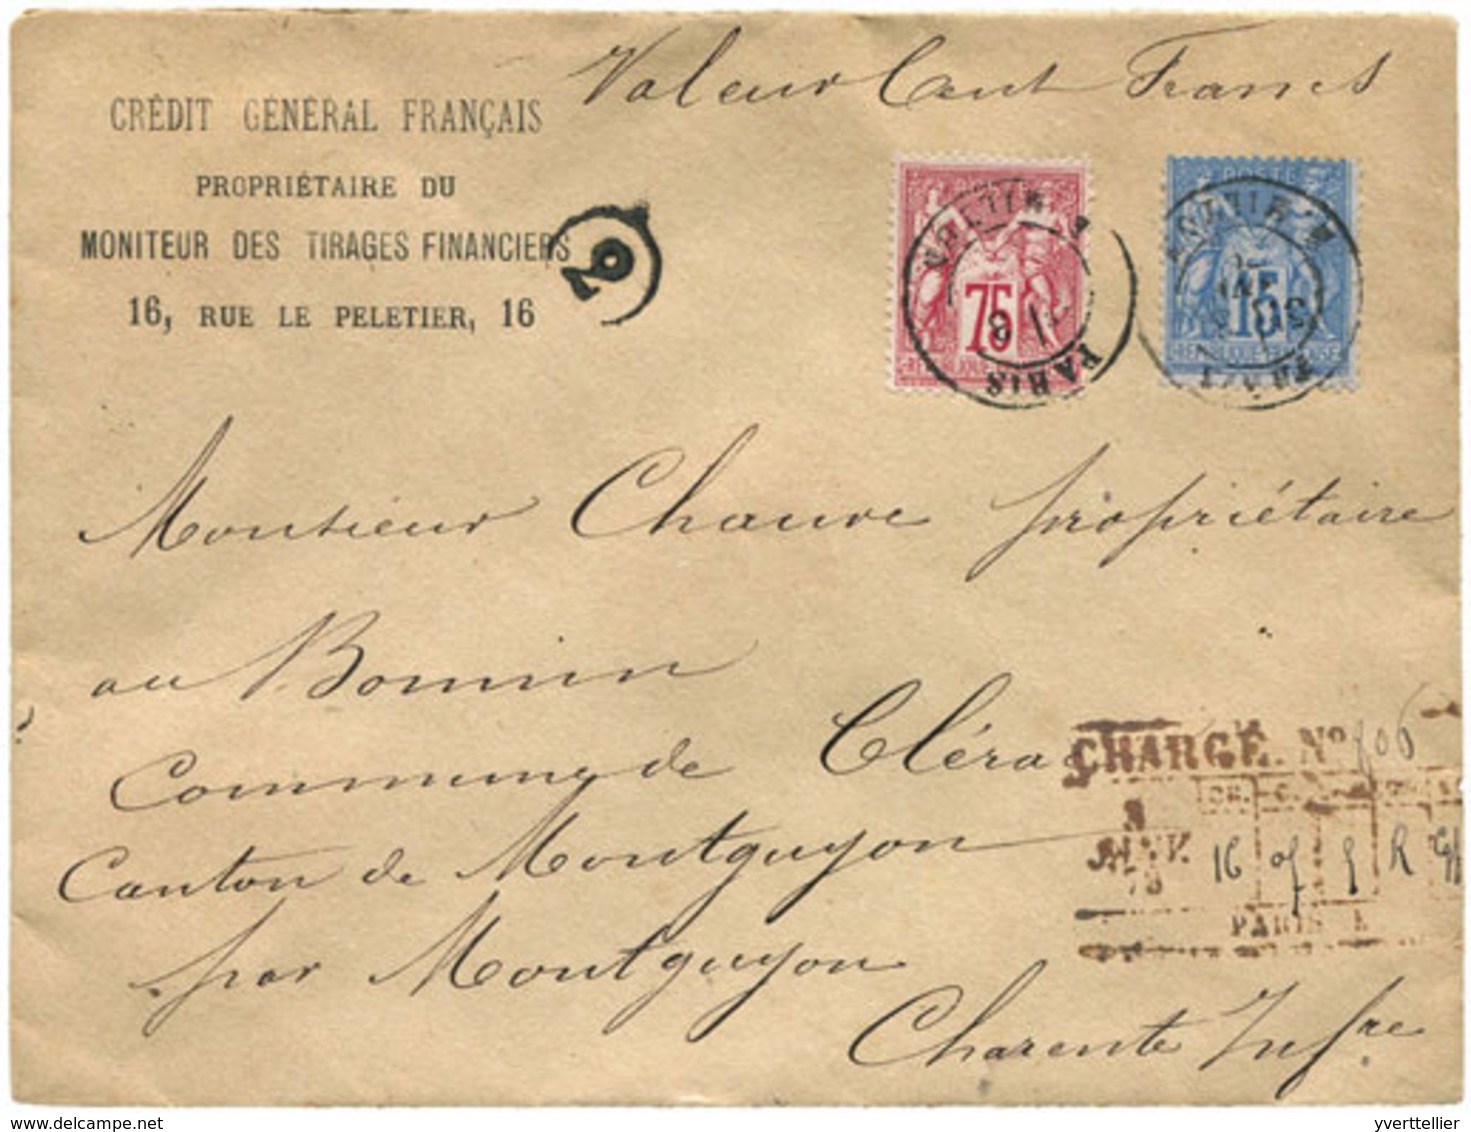 Valeur Cent Francs
CRÉDIT GÉNÉRAL FRANÇAIS
PROPRIÉTAIRE DU
MONITEUR DES TIRAGES FINANCIERS
16, RUE LE PELETIER, 16
75
15
PARIS
Monsieur Chauve propriétaire
au Bonnin
Commune de Cléra
Canton de Montguyon
par Montguyon
Charente Infre
CHARGÉ. No 106
8
JANV.
79
16 of 5 R
PARIS
yverttellier